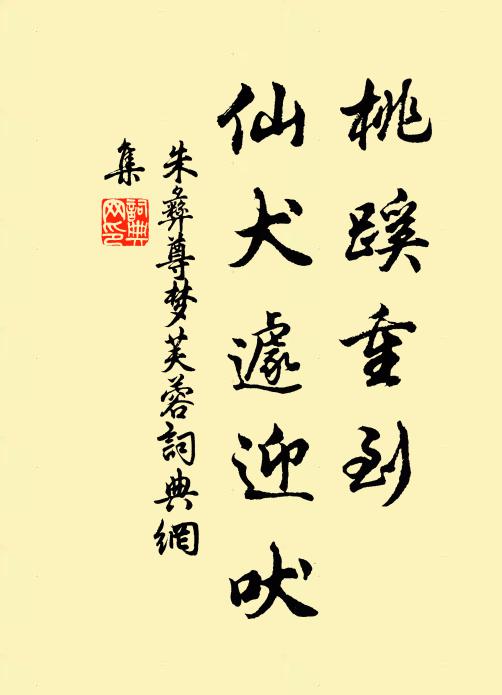 桃蹊重到
仙犬遽迎吠
朱彝尊梦芙蓉詞典網
集
詞典
网印